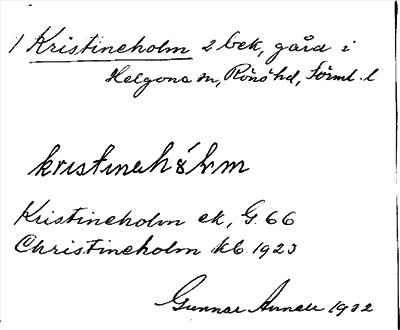 1 Kristineholm 2 bek, gård i
Helgona sn, Rönö hd, Sörml. l
kristinehålm
Kristineholm ek, G. 66
Christineholm kb 1923
Gunnar 1932